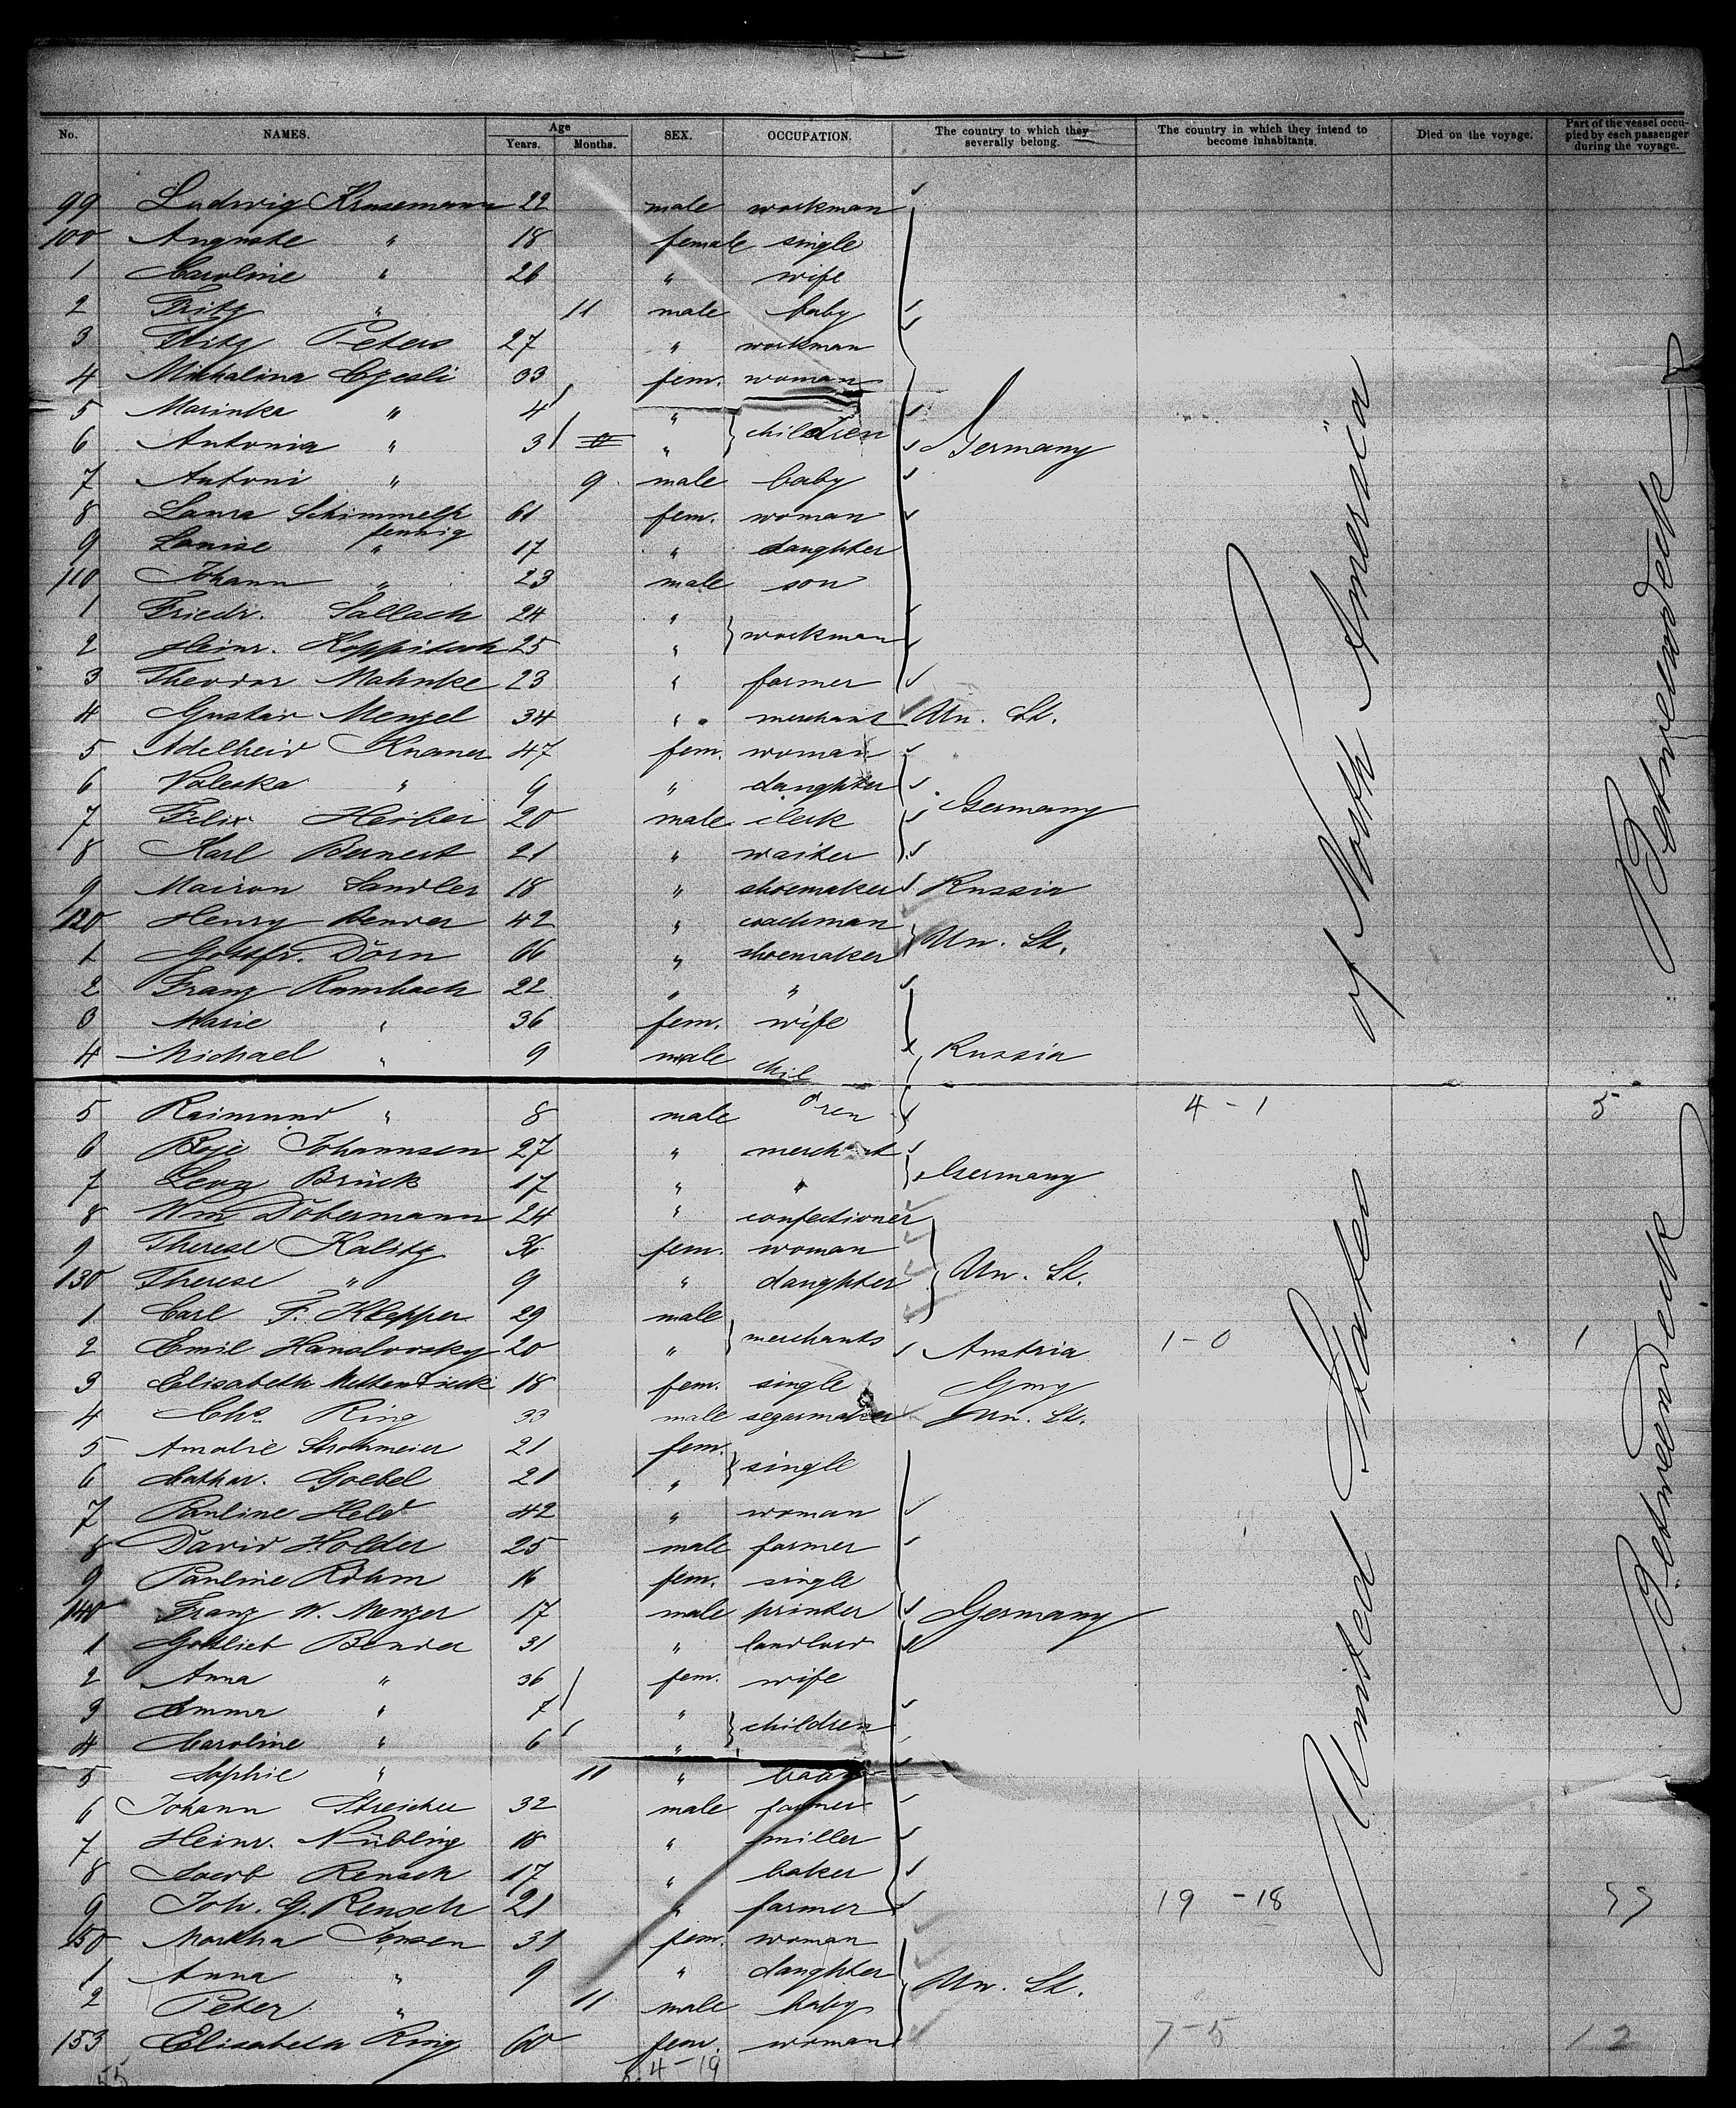 No. NAMES. Age Years. Months. SEX. OCCUPATION. The country to which they severally belong. The country in which they intend to become inhabitants. Died on the voyage. Part of the vessel occupied by each passenger during the voyage.
99 Ludwig Krusemann 22 male workman
100 Auguste " 18 female single
1 Caroline " 26 " wife
2 Fritz " 11 male baby
3 Fritz Peters 27 " workman
4 Michalina Czesli 33 fem. woman
5 Marinka " 4 "
6 Antonia " 3 " children Germany
7 Antoni " 9 male baby
8 Laura Schimmelpfennig 61 fem. woman
9 Louise " 17 " daughter
110 Johann " 23 male son
1 Friedr. Sallach 24 "
2 Heinr. Koppitsch 25 " workman
3 Theodor Mahnke 23 " farmer
4 Gustav Menzel 34 " merchant Un. St.
5 Adelheid Knauer 47 fem. woman
6 Valeska " 9 " daughter
7 Felix Herber 20 male clerk Germany
8 Karl Bernert 21 " waiter
9 Mairon Sandler 18 " shoemaker Russia
120 Henry Bender 42 " coachman
1 Gottfr. Dörn 66 " shoemaker Un. St.
2 Franz Rumbach 22 " "
3 Marie " 36 fem. wife
4 Michael " 9 male chil Russia
5 Raimund " 8 male dren 4 - 1 5
6 Boje Johannsen 27 " merchant
7 Levy Brück 17 " " Germany
8 Wm Dobermann 24 " confectioner
9 Therese Kalitz 36 fem. woman
130 Therese " 9 " daughter Un. St.
1 Carl F. Klepper 29 male
2 Emil Hanslovsky 20 " merchants Austria 1 - 0 1
3 Elisabeth 18 fem. single Gmy
4 Chs. Ring 33 male segarmaker Un. St.
5 Amalie Strohmeier 21 fem.
6 Cathar. Goebel 21 " single
7 Pauline Held 42 " woman
8 David Holder 25 male farmer
9 Pauline Röhm 16 fem. single
140 Franz W. Menzer 17 male printer Germany
1 Gottlieb Bender 31 " landlord
2 Anna " 36 fem. wife
3 Emma " 7 "
4 Caroline " 6 " children
5 Sophie " 11 " baby
6 Johann Streicher 32 male farmer
7 Heinr. Nübling 18 " miller
8 Jacob Rensch 17 " baker
9 Joh. G. Rensch 21 " farmer 19 - 18
150 Martha Jensen 31 fem. woman
1 Anna " 9 " daughter Un. St.
2 Peter " 11 male baby
153 Elisabeth Ring 60 fem. woman 7 - 5 12
55 4 - 19
United States of North America
Betweendeck
Betweendeck